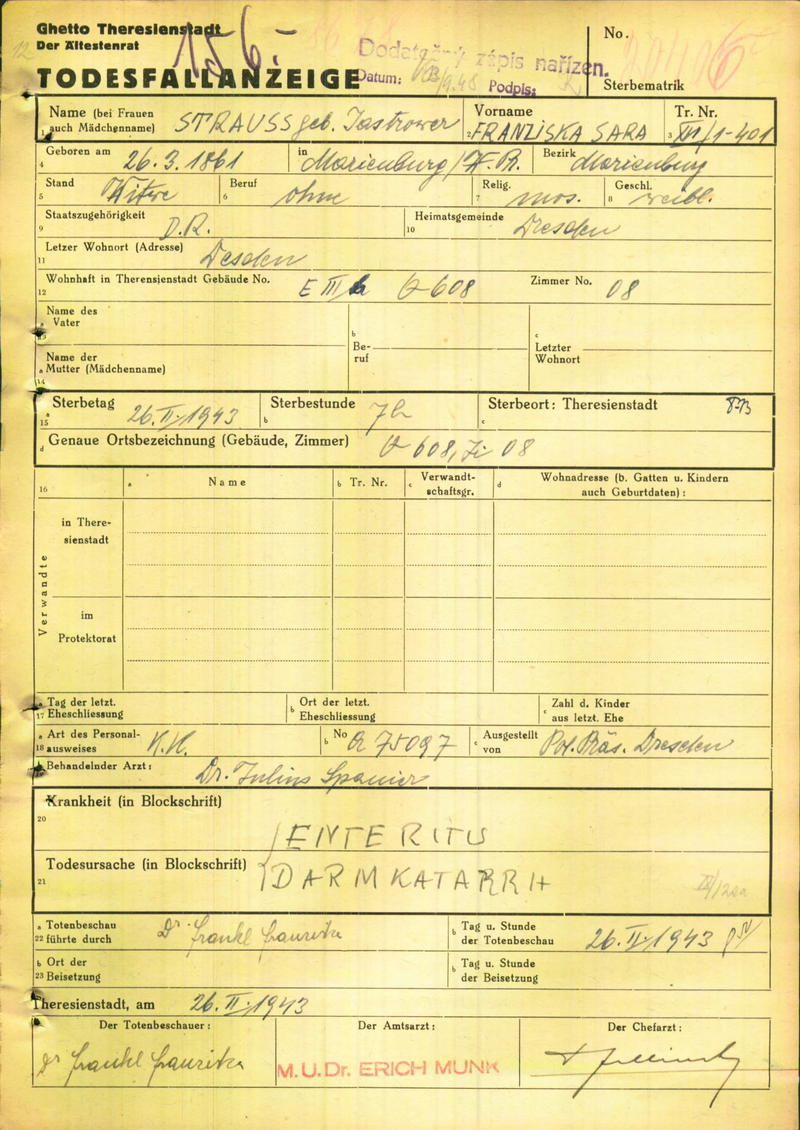 Ghetto Theresienstadt
Der Ältestenrat
TODESFALLANZEIGE
156-
Dodatečný zápis nařízen.
Datum: Podpis:
No.
Sterbematrik
Name (bei Frauen auch Mädchenname) STRAUSS geb. Jastrower
Vorname FRANZISKA SARA
Tr. Nr. XVI/1-401
Geboren am 26.3.1861 in Marienburg/W. Pr. Bezirk Marienburg
Stand Witwe Beruf ohne Relig. mos. Geschl. weibl.
Staatszugehörigkeit D.R. Heimatsgemeinde Dresden
Letzer Wohnort (Adresse) Desden
Wohnhaft in Therensienstadt Gebäude No. E III Q 608 Zimmer No. 08
Name des Vater
Be-ruf
Letzter Wohnort
Name der Mutter (Mädchenname)
Sterbetag 26.II.1943 Sterbestunde 7h Sterbeort: Theresienstadt
Genaue Ortsbezeichnung (Gebäude, Zimmer) Q 608, Zi 08
Name Tr. Nr. Verwandt-schaftsgr. Wohnadresse (b. Gatten u. Kindern auch Geburtdaten):
Verwandte
in There-sienstadt
im Protektorat
Tag der letzt. Eheschliessung
Ort der letzt. Eheschliessung
Zahl d. Kinder aus letzt. Ehe
Art des Personal-ausweises K.K. No A 75097 Ausgestellt von Pol. Präs. Dresden
Behandelnder Arzt: Dr. Julius Spanier
Krankheit (in Blockschrift)
ENTERITIS
Todesursache (in Blockschrift) DARMKATARRH
Totenbeschau führte durch Dr Frankl
Tag u. Stunde der Totenbeschau 26.II.1943
Ort der Beisetzung
Tag u. Stunde der Beisetzung
Theresienstadt, am 26.II.1943
Der Totenbeschauer: Der Amtsarzt: Der Chefarzt:
Dr Frankl
M.U.Dr. ERICH MUNK